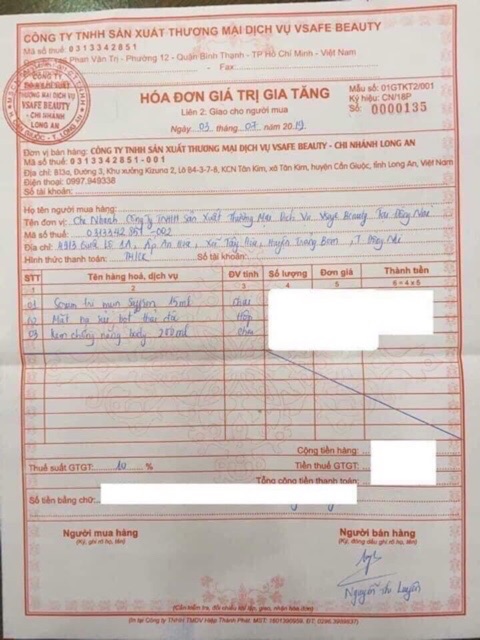 CÔNG TY TNHH SẢN XUẤT THƯƠNG MẠI DỊCH VỤ VSAFE BEAUTY
Mã số thuế: 0313342851
Phan Văn Trị - Phường 12 - Quận Bình Thạnh - TP Hồ Chí Minh - Việt Nam
- Fax:
CÔNG TY
THƯƠNG MẠI DỊCH VỤ
VSAFE BEAUTY
- CHI NHÁNH
LONG AN
HÓA ĐƠN GIÁ TRỊ GIA TĂNG
Liên 2: Giao cho người mua
Ngày 03 tháng 07 năm 2019
Mẫu số: 01GTKT2/001
Ký hiệu: CN/18P
Số: 0000135
Đơn vị bán hàng: CÔNG TY TNHH SẢN XUẤT THƯƠNG MẠI DỊCH VỤ VSAFE BEAUTY - CHI NHÁNH LONG AN
Mã số thuế: 0313342851-001
Địa chỉ: 813a, Đường 3, Khu xưởng Kizuna 2, Lô B4-3-7-8, KCN Tân Kim, xã Tân Kim, huyện Cần Giuộc, tỉnh Long An, Việt Nam
Điện thoại: 0997.949338
Số tài khoản:
Họ tên người mua hàng:
Tên đơn vị: Chi Nhánh Công Ty TNHH Sản Xuất Thương Mại Dịch Vụ Vsafe Beauty Tại Đồng Nai
Mã số thuế: 0313342851-002
Địa chỉ: Quốc Lộ 1A, Ấp An Hòa, Xã Tây Hòa, Huyện Trảng Bom, T. Đồng Nai
Hình thức thanh toán: TM/CK Số tài khoản:
STT Tên hàng hoá, dịch vụ ĐV tính Số lượng Đơn giá Thành tiền
1 2 3 4 5 6 = 4 x 5
01 Serum trị mụn 15ml chai
02 Mặt nạ Hộp
03 Kem chống nắng body chai
Cộng tiền hàng:
Thuế suất GTGT: 10 % Tiền thuế GTGT:
Tổng cộng tiền thanh toán:
Số tiền bằng chữ:
Người mua hàng
(Ký, ghi rõ họ, tên)
Người bán hàng
(Ký, đóng dấu ghi rõ họ, tên)
Nguyễn Thị Luyến
(Cần kiểm tra, đối chiếu khi lập, giao, nhận hóa đơn)
(In tại Công ty TNHH TMDV Hiệp Thành Phát, MST: 1601390959. ĐT: 0296.3959637)